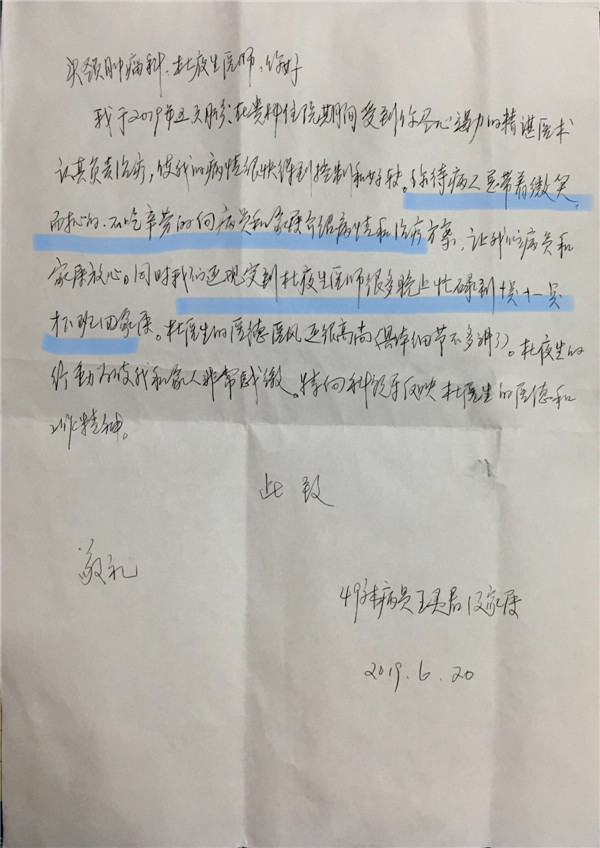 头颈肿瘤科、杜夜生医师、你好
我于2019年五月份,在贵科住院期间受到你尽心尽力的精湛医术
认真负责治疗,使我的病情很快得到控制和好转。你待病人总带着微笑
而热心的、不吃辛劳的向病员和家康介绍病情和治疗方案,让我们病员和
家康放心。同时我们还观察到杜夜生医师很多晚上忙碌到十点十一点
才下班回家康。杜医生的医德医风还很高尚(具体细节不多讲了)。杜夜生的
行动而使我和家人非常感激。特向科领导反映杜医生的医德和
工作精神。
此致
敬礼
49床病员王 及家康
2019.6.20